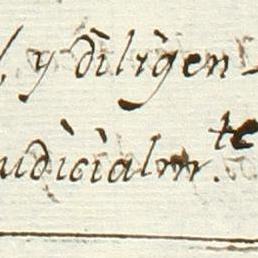 , y diligen-
udicialm.te